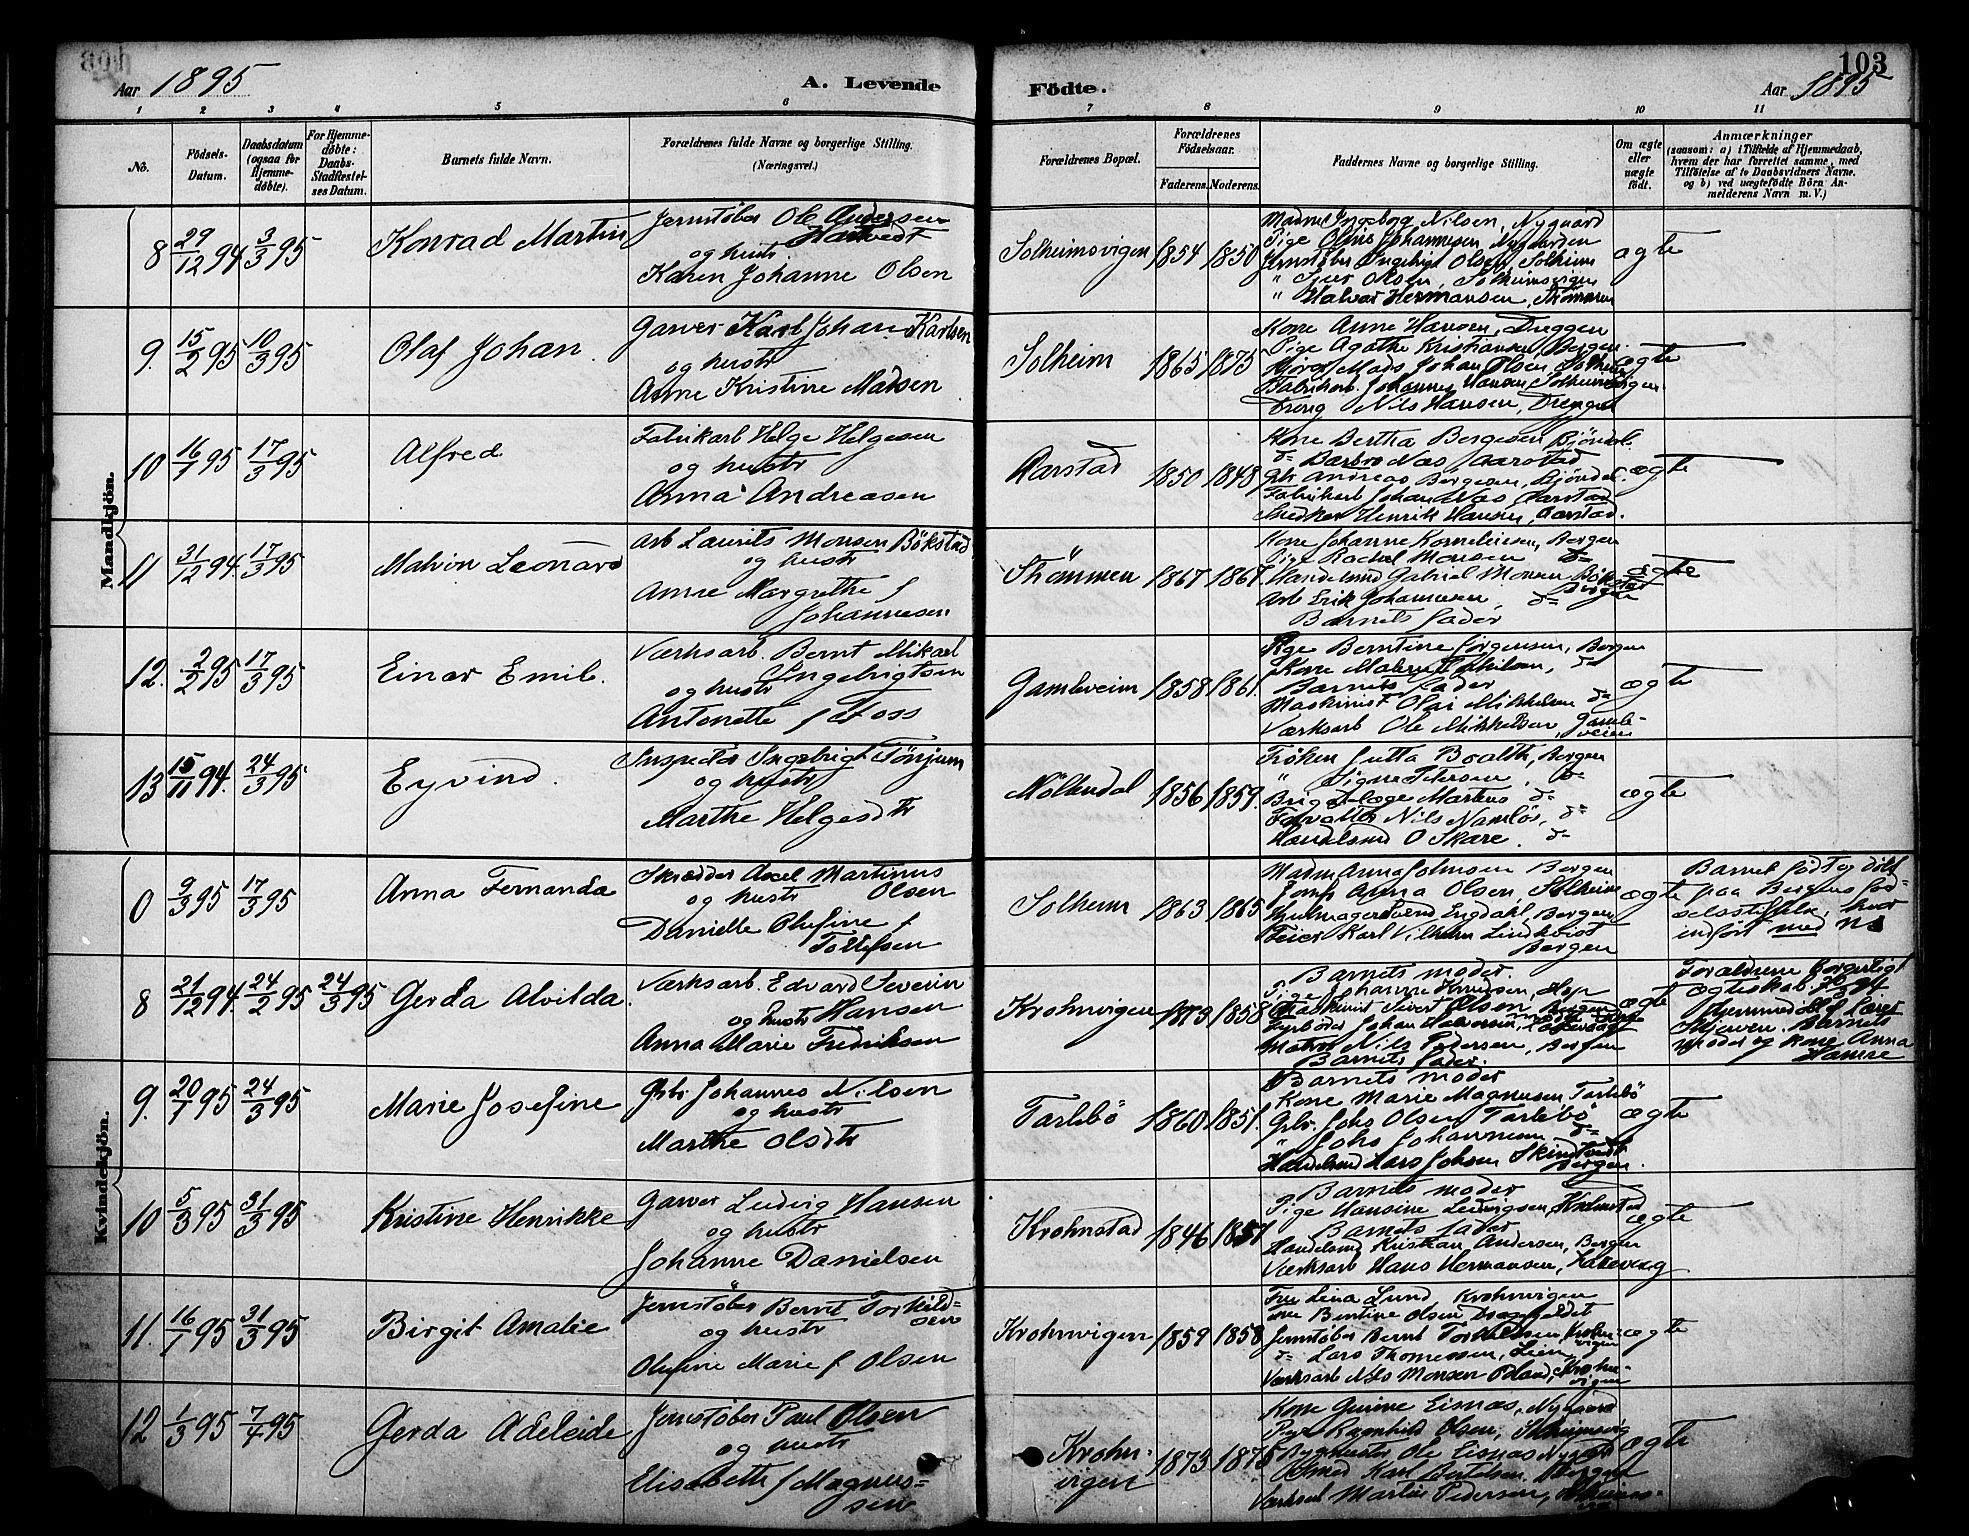 103
Aar 1895
A. Levende
Födte.
Aar 1895
1 2 3 4 5 6 7 8 9 10 11
No.
Födsels-Datum.
Daabsdatum (ogsaa for Hjemme-döbte).
For Hjemme-döbte: Daabs-Stadfæstel-ses Datum.
Barnets fulde Navn.
Forældrenes fulde Navne og borgerlige Stilling.
(Næringsvei.)
Forældrenes Bopæl.
Forældrenes Födselsaar.
Faderens. Moderens.
Faddernes Navne og borgerlige Stilling.
Om ægte eller uægte födt.
Anmærkninger
(saasom: a) i Tilfælde af Hjemmedaab, hvem der har forrettet samme, med Tilföielse af to Daabsvidners Navne. og b) ved uægtefödte Börn An-melderens Navn m. V.)
Mandkjön.
8 29/12 94. 3/3 95 Konrad Martin
Jernstøber Ole Andersen
og hustr
Karen Johanne Olsen
Solheimsvigen 1854 1850
Madme Ingeborg Nilsen, Nygaard
Pige Olina Johannesen, Nygaarden
Jernstøber Ingebrigt Olsen, Solheim
" Sjur Olsen, Solheimsvigen
" Halvor Hermansen, Strømmen
ægte
9. 15/2 95 10/3 95 Olaf Johan.
Garver Karl Johan Karlsen
og hustr
Anne Kristine Madsen
Solheim 1865 1875
Kone Anne Hansen, Dreggen
Pige Agathe Kristiansen, Bergen.
Mads Johan Olsen, Solheim
Fabrikarb. Johannes Hansen, Solheimsvigen.
Dreng Nils Hansen, Dreggen
ægte
10 16/1 95 17/3 95 Alfred
Fabrikarb Helge Helgesen
og hustr
Anna Andreasen
Aarstad 1850 1848
Kone Bertha Bergesen Bjöndal.
d= Barbro Næs Aarstad
Gbr Andreas Bergesen, Bjöndal.
Fabrikarb Johan Næs, Aarstad
Snedker Henrik Hansen, Aarstad.
ægte
11 31/12 94. 17/3 95 Malvin Leonard
Arb Laurits Monsen Bökstad
og hustr
Anne Margrethe f
Johannesen
Strömmen 1867 1867
Kone Johanne Korneliusen, Bergen
Pige Rachel Monsen d=
Handelsmd Gabriel Monsen Bökstad
Bergen
Arb Erik Johannesen, d=
Barnets fader
ægte
12. 2/2 95 17/3 95 Einar Emil.
Værksarb. Bernt Mikael
Ingebrigtsen
og hustr
Antonette f Foss
Gamleveien 1858 1861.
Pige Berntine Jörgensen, Bergen
Kone d=
Barnets fader
Maskinist Olai Mikkelsen d=
Værksarb Ole Mikkelsen, Gamle-
veien
ægte
13 15/11 94. 24/3 95 Eyvind.
Inspektör Ingebrigt Tönjum
og hustr
Marthe Helgesdtr
Möllendal 1856 1859.
Fröken Jutta Boalth, Bergen
" Signe Petersen, d=
Brigadelæge Martens d=
Forvalter Nils Namlös, d=
Handelsmd O Skare. d=
ægte
Kvindekjön.
0 9/3 95 17/3 95 Anna Fernanda
Skrædder Axel Martinus
Olsen
og hustr
Danielle Olufine f
Tollefsen
Solheim 1863 1865
Madm Anna Johnsen Bergen
Jomf Anna Olsen, Solheim
Hjulmager Svend Engdahl, Bergen
Feier Karl Vilhelm Lindkvist
Bergen
ægte
Barnet födt og döbt
paa Bergens fød-
selsstiftelse, hvor
indført med No
8 21/12 94. 24/2 95 24/3 95 Gerda Alvilda.
Værksarb. Edvard Severin
og hustr Hansen
Anna Marie Fredriksen
Krohnvigen 1873 1858
Barnets moder.
Pige Johanne Knudsen, Hop
Maskinist Sivert Olsen
Fyrböder Johan Halvorsen, Laksevaag
Matros Nils Pedersen, Bergen
Barnets fader.
ægte
Forældrene borgerligt
ægteskab
Hjemmedöbt af
Barnets
moder og kone Anna
Hansen
9. 20/1 95 24/3 95 Marie Josefine
Gbr. Johannes Nilsen
og hustr
Marthe Olsdtr
Tarlebö 1860 1851.
Barnets moder
Kone Marie Magnusen Tarlebö
Gbr. Johs Olsen Tarlebö
" Johs Johannesen d=
Handelsmd Lars Johsen Skindtveit
Bergen.
ægte
10 5/3 95 31/3 95 Kristine Henrikke
Garver Ludvig Hansen
og hustr
Johanne Danielsen
Krohnstad 1846 1851
Barnets moder
Pige Hansine Ludvigsen, Krohnstad
Barnets fader
Handelsmd Kristian Andersen, Bergen
Værksarb Hans Hermansen, Laksevaag
ægte
11. 16/1 95 31/3 95 Birgit Amalie
Jernstøber Bernt Torkild-
sen
og hustr
Olefine Marie f Olsen
Krohnvigen 1859 1858
Fru Lina Lund Krohnvigen
Fru Bentine Olsen Dragefjeldet
Jernstøber Bernt Torkildsen, Krohn-
vigen
d= Lars Thomessen, Lien
Værksarb Nils Monsen, Krohn-
vigen
ægte
12 1/3 95 7/4 95 Gerda Adeleide
Jernstøber Paul Olsen
og hustr
Elisabeth f Magnus-
sen
Krohn-
vigen 1873 1875
Kone Gurine Eisnæs, Nygaard
Pige Ragnhild Olsen, Solheimsvig
Ole Eisnæs, Nygård
Karl Bertelsen, Bergen
Værksarb Martin Pedersen, Solheims-
ægte